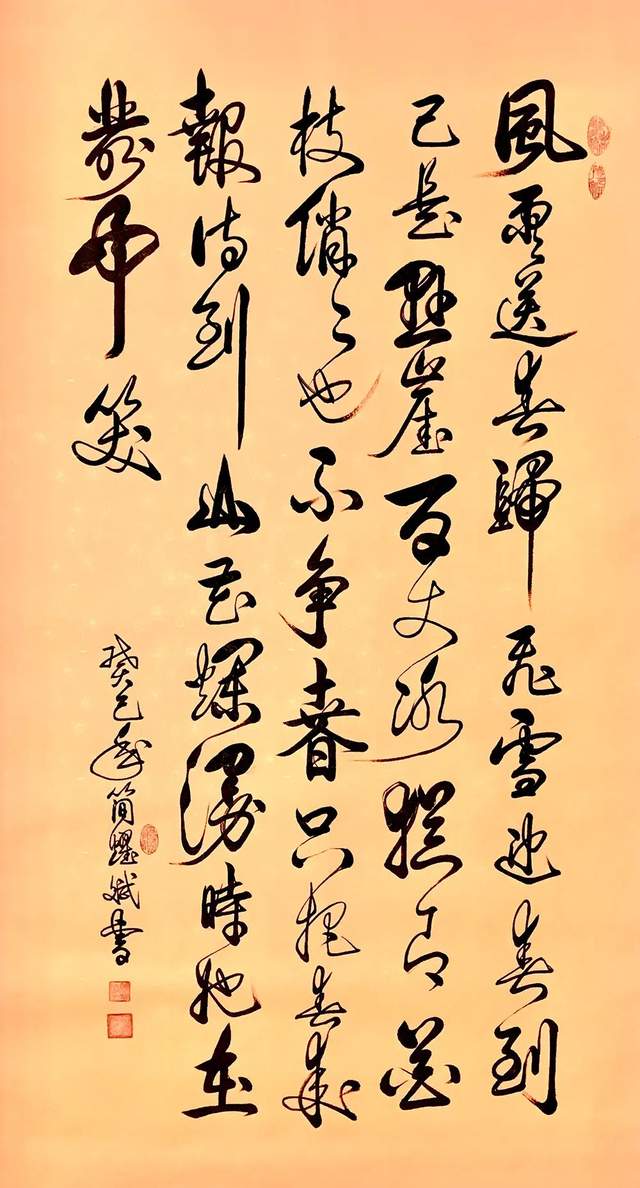 風雨送春歸飛雪迎春到
已是懸崖百丈冰猶有花
枝俏々也不争春只把春來
報待到山花爛漫時她在
叢中笑
癸巳年簡耀斌書